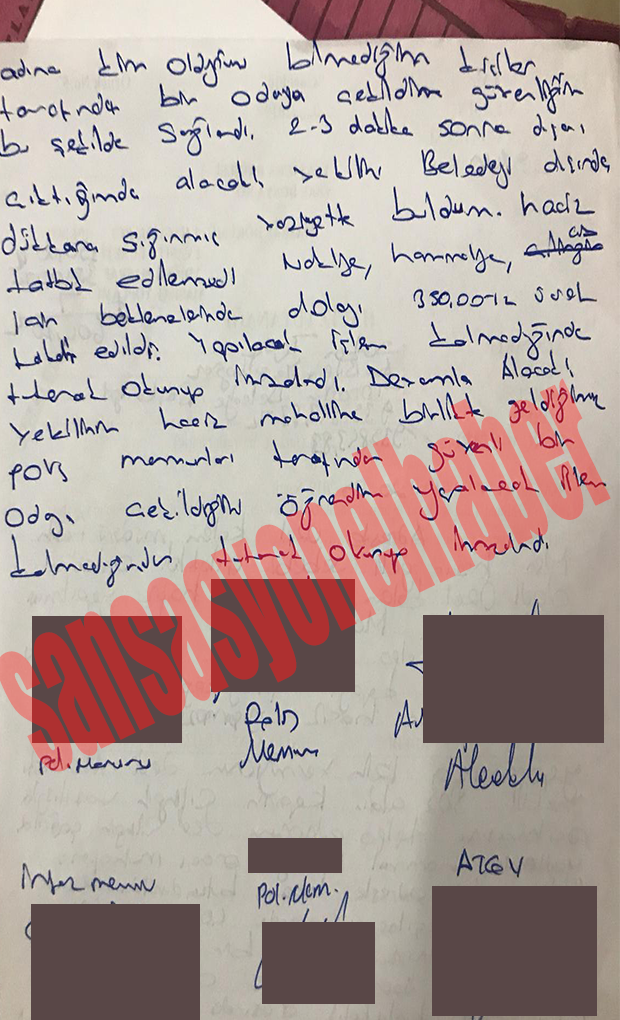 adına kim olduğunu bilmediğim kişiler
tarafından bir odaya çekildim güvenliğim
bu şekilde sağlandı. 2-3 dakika sonra dışarı
çıktığımda alacaklı vekilini Belediye dışında
dükkana sığınmış vaziyette buldum. haciz
tatbik edilemedi Nakliye, hammaliye,
araç beklemelerinde dolayı 350,00 TL ücret
takdir edildi. Yapılacak işlem kalmadığında
tutanak okunup imzalandı. Devamla Alacaklı
vekilinin haciz mahalline birlikte geldiğimiz
polis memurları tarafından güvenli bir
Odaya çekildiğini öğrendim yapılacak işlem
kalmadığından tutanak okunup imzalandı
sansasyonelhaber
Pol. Memuru
Polis
Memuru
Alacaklı
İnfaz memuru
Pol. Mem.